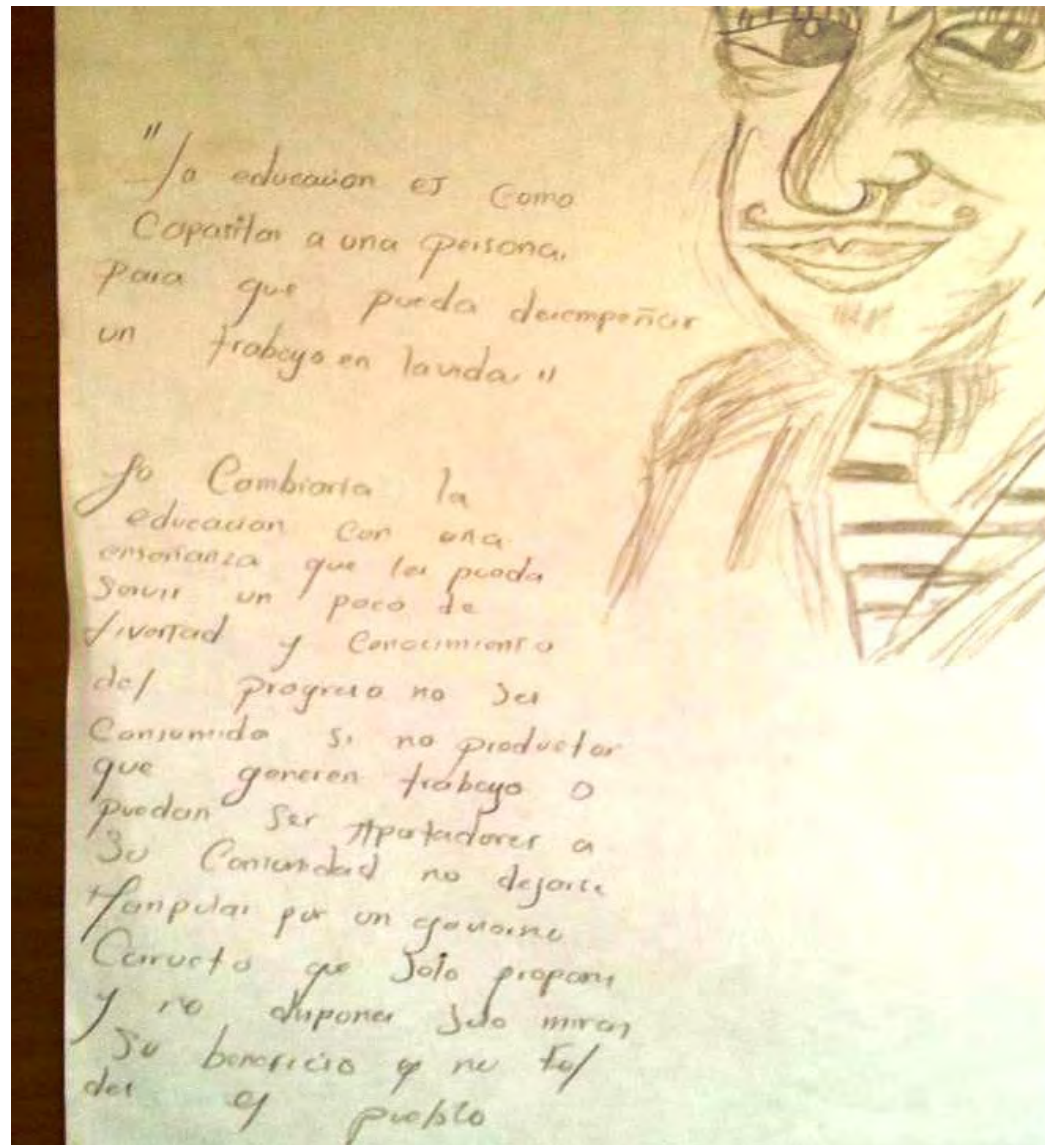 "la educacion es Como
Capasitar a una persona,
para que pueda desempeñar
un trabayo en la vida"
yo Cambiaria la
educacion con una
enseñanza que les pueda
Servir un poco de
livertad y Conocimiento
del progreso no ser
Consumido si no productor
que generen trabayo o
puedan ser Aportadores a
Su Comunidad no dejarse
Manipular por un govierno
Corructo que Solo propone
y no disponer Solo miran
Su beneficio y no
del el pueblo